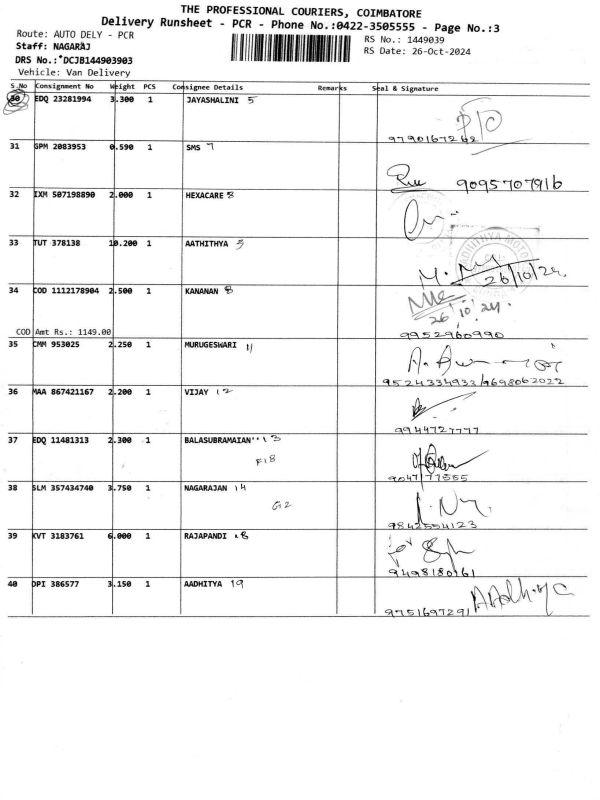 THE PROFESSIONAL COURIERS, COIMBATORE
Delivery Runsheet - PCR - Phone No.:0422-3505555 - Page No.:3
Route: AUTO DELY - PCR RS No.: 1449039
Staff: NAGARAJ RS Date: 26-Oct-2024
DRS No.:*DCJB144903903
Vehicle: Van Delivery
S.No Consignment No Weight PCS Consignee Details Remarks Seal & Signature
30 EDQ 23281994 3.300 1 JAYASHALINI 5
9790167262
31 GPM 2083953 0.590 1 SMS 7
9095707916
32 IXM 507198890 2.000 1 HEXACARE 8
33 TUT 378138 10.200 1 AATHITHYA 5
26/10/24
34 COD 1112178904 2.500 1 KANANAN 8
26/10/24
COD Amt Rs.: 1149.00 9952960990
35 CMM 953025 2.250 1 MURUGESWARI 11
9524334933/9698062022
36 MAA 867421167 2.200 1 VIJAY 12
9944727777
37 EDQ 11481313 2.300 1 BALASUBRAMAIAN 13
F18
9047177555
38 SLM 357434740 3.750 1 NAGARAJAN 14
G2
9842554123
39 KVT 3183761 6.000 1 RAJAPANDI 18
9498180161
40 OPI 386577 3.150 1 AADHITYA 19
9751697291